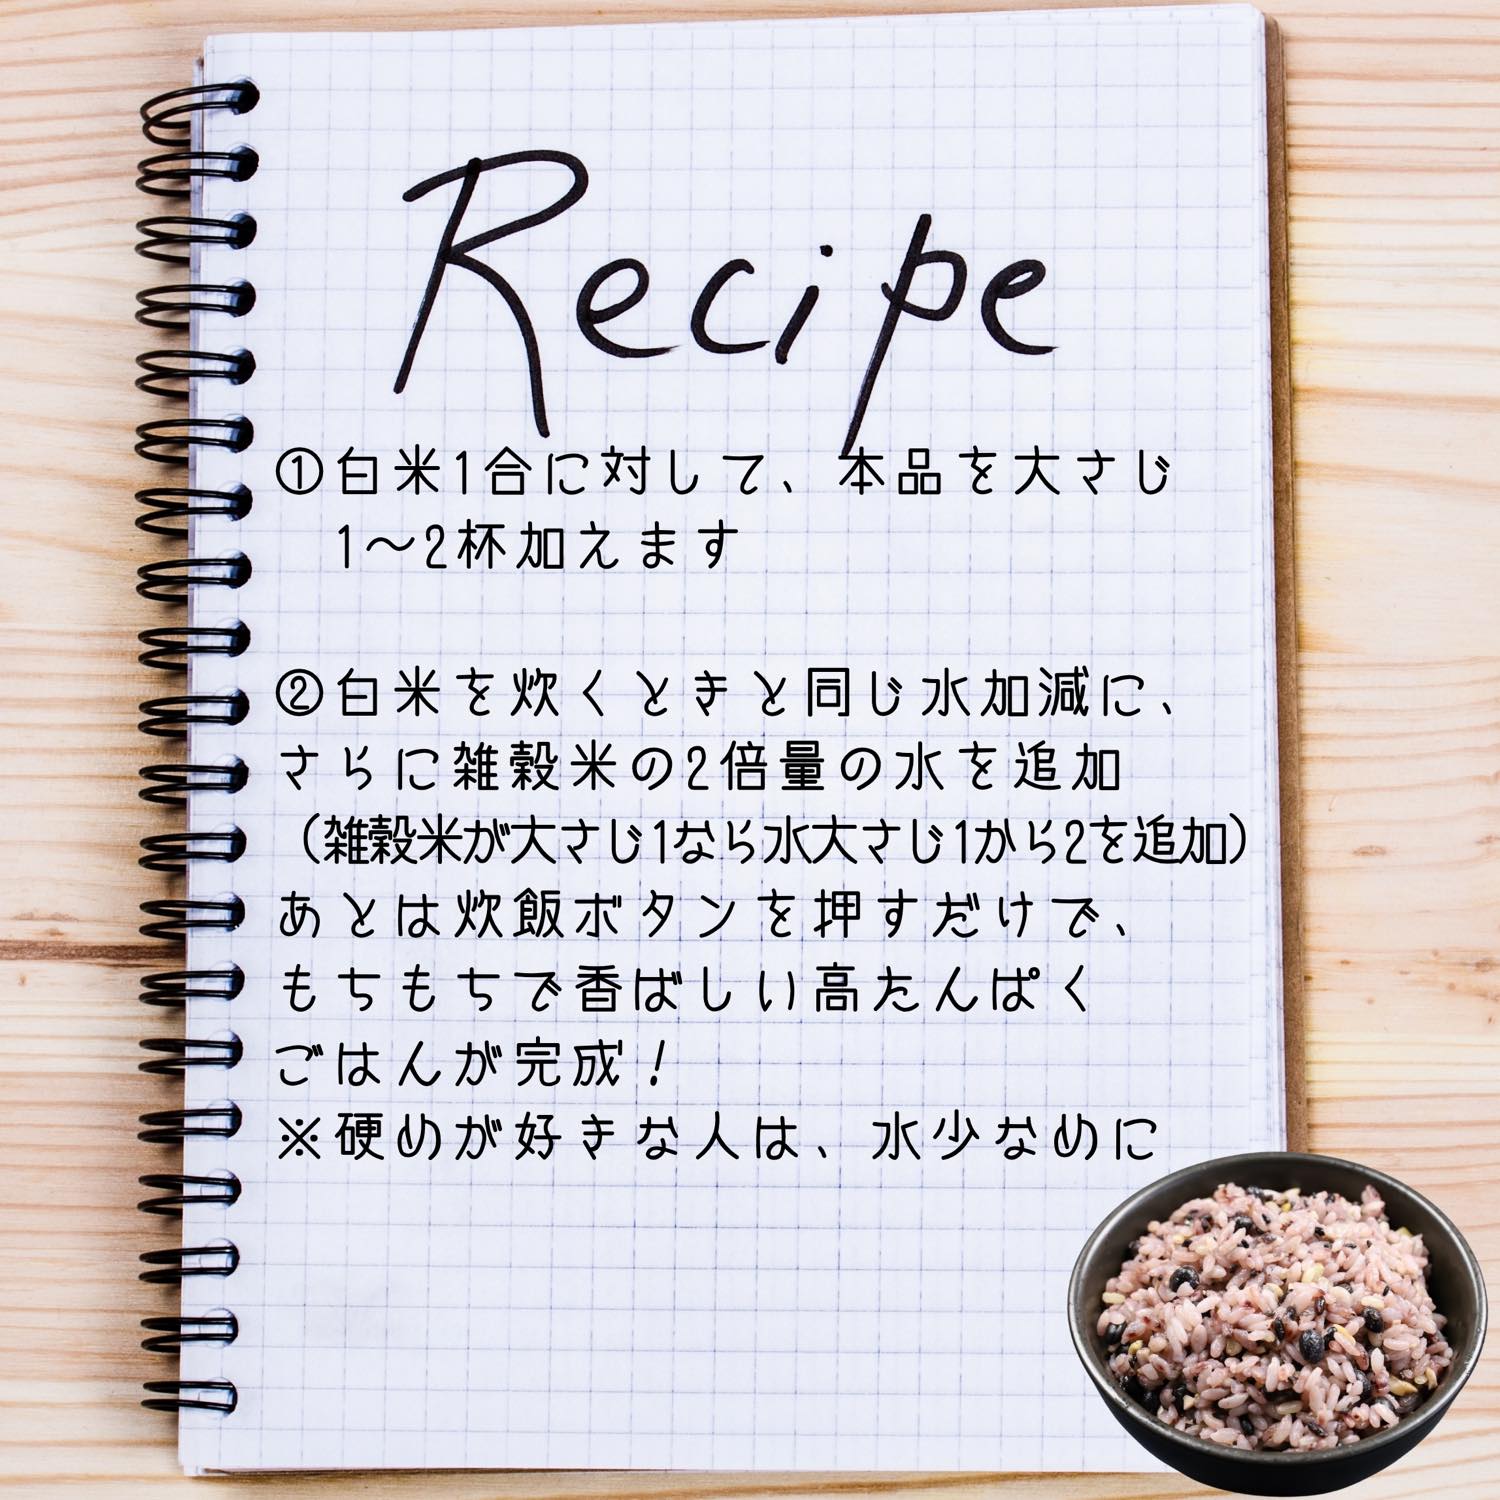 Recipe
①白米1合に対して、本品を大さじ
1〜2杯加えます
②白米を炊くときと同じ水加減に、
さらに雑穀米の2倍量の水を追加
（雑穀米が大さじ1なら水大さじ1から2を追加）
あとは炊飯ボタンを押すだけで、
もちもちで香ばしい高たんぱく
ごはんが完成！
※硬めが好きな人は、水少なめに